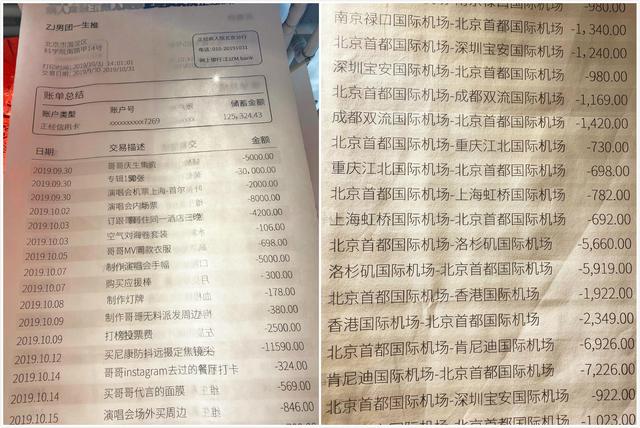 ZJ男团一生推
正经病人院北京分行
电话:010-20191031
网上银行:ZJZM.bank
北京市海淀区
科学院南路甲14号
打印时间: 2019/10/31 14:01:01
交易日期: 2019/9/30 2019/10/31
账单总结
账户类型 账户号 储蓄金额
正经信用卡 xxxxxxxxxx7269 125,324.43
日期 交易描述 金额
2019.09.30 哥哥庆生集资 -5000.00
2019.09.30 专辑150张 -30,000.00
2019.09.30 演唱会机票上海-首尔 -2000.00
2019.10.02 演唱会内场票 -8000.00
2019.10.03 订跟哥哥住同一酒店三晚 -4200.00
2019.10.03 空气刘海卷套装 -106.00
2019.10.05 哥哥MV同款衣服 -698.00
2019.10.07 制作演唱会手幅 -5000.00
2019.10.08 购买应援棒 -300.00
2019.10.09 制作灯牌 -178.00
2019.10.09 制作哥哥无料派发周边 -380.00
2019.10.12 打榜投票费 -2500.00
2019.10.14 买尼康防抖远摄定焦镜头 -11590.00
2019.10.14 哥哥instagram去过的餐厅打卡 -324.00
2019.10.15 买哥哥代言的面膜 -569.00
演唱会场外买周边 -846.00
南京禄口国际机场 -980.00
南京禄口国际机场-北京首都国际机场 -1,340.00
北京首都国际机场-深圳宝安国际机场 -1,240.00
深圳宝安国际机场-北京首都国际机场 -980.00
北京首都国际机场-成都双流国际机场 -1,169.00
成都双流国际机场-北京首都国际机场 -1,420.00
北京首都国际机场-重庆江北国际机场 -730.00
重庆江北国际机场-北京首都国际机场 -698.00
北京首都国际机场-上海虹桥国际机场 -782.00
上海虹桥国际机场-北京首都国际机场 -692.00
北京首都国际机场-洛杉矶国际机场 -5,660.00
洛杉矶国际机场-北京首都国际机场 -5,919.00
北京首都国际机场-香港国际机场 -1,922.00
香港国际机场-北京首都国际机场 -2,349.00
北京首都国际机场-肯尼迪国际机场 -6,926.00
肯尼迪国际机场-北京首都国际机场 -7,226.00
北京首都国际机场-深圳宝安国际机场 -922.00
北京首都国际机场 -1,023.00